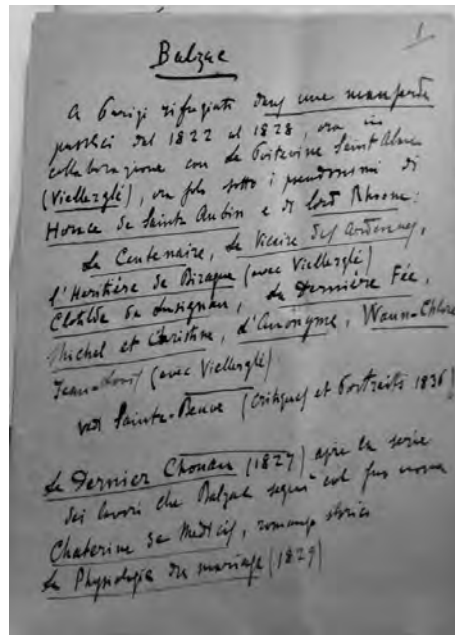 1
Balzac
A Parigi rifugiati dans une mansarde
pubblicò dal 1822 al 1828, ora in
collaborazione con Le Poitevin Saint-Alme
(Viellerglé), ora solo sotto i pseudonimi di
Horace de Sainte Aubin e di lord Rhoone:
Le Centenaire, Le Vicaire des Ardennes,
l'Héritière de Birague (avec Viellerglé)
Clotilde de Lusignan, La Dernière Fée,
Michel et Christine, L'Anonyme, Wann-Chlore
Jean-Louis (avec Viellerglé)
vedi Sainte-Beuve (Critiques et Portraits 1836)
Le Dernier Chouan (1827) apre la serie
dei lavori che Balzac segnò col suo nome
Chaterine de Medicis, romanzo storico
La Physiologie du mariage (1829)